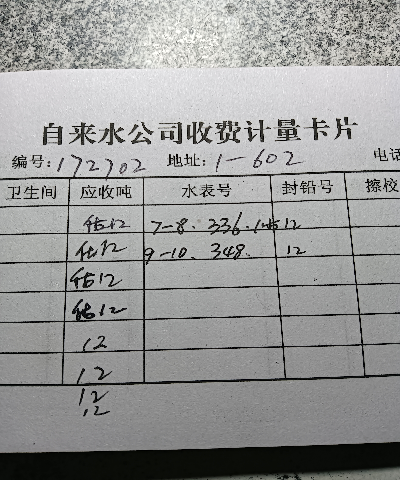 自来水公司收费计量卡片
编号:172702 地址:1-602 电话
卫生间 应收吨 水表号 封铅号 擦校
估12 7-8. 336. 12
估12 9-10. 348. 12
估12
估12
12
12
12
12